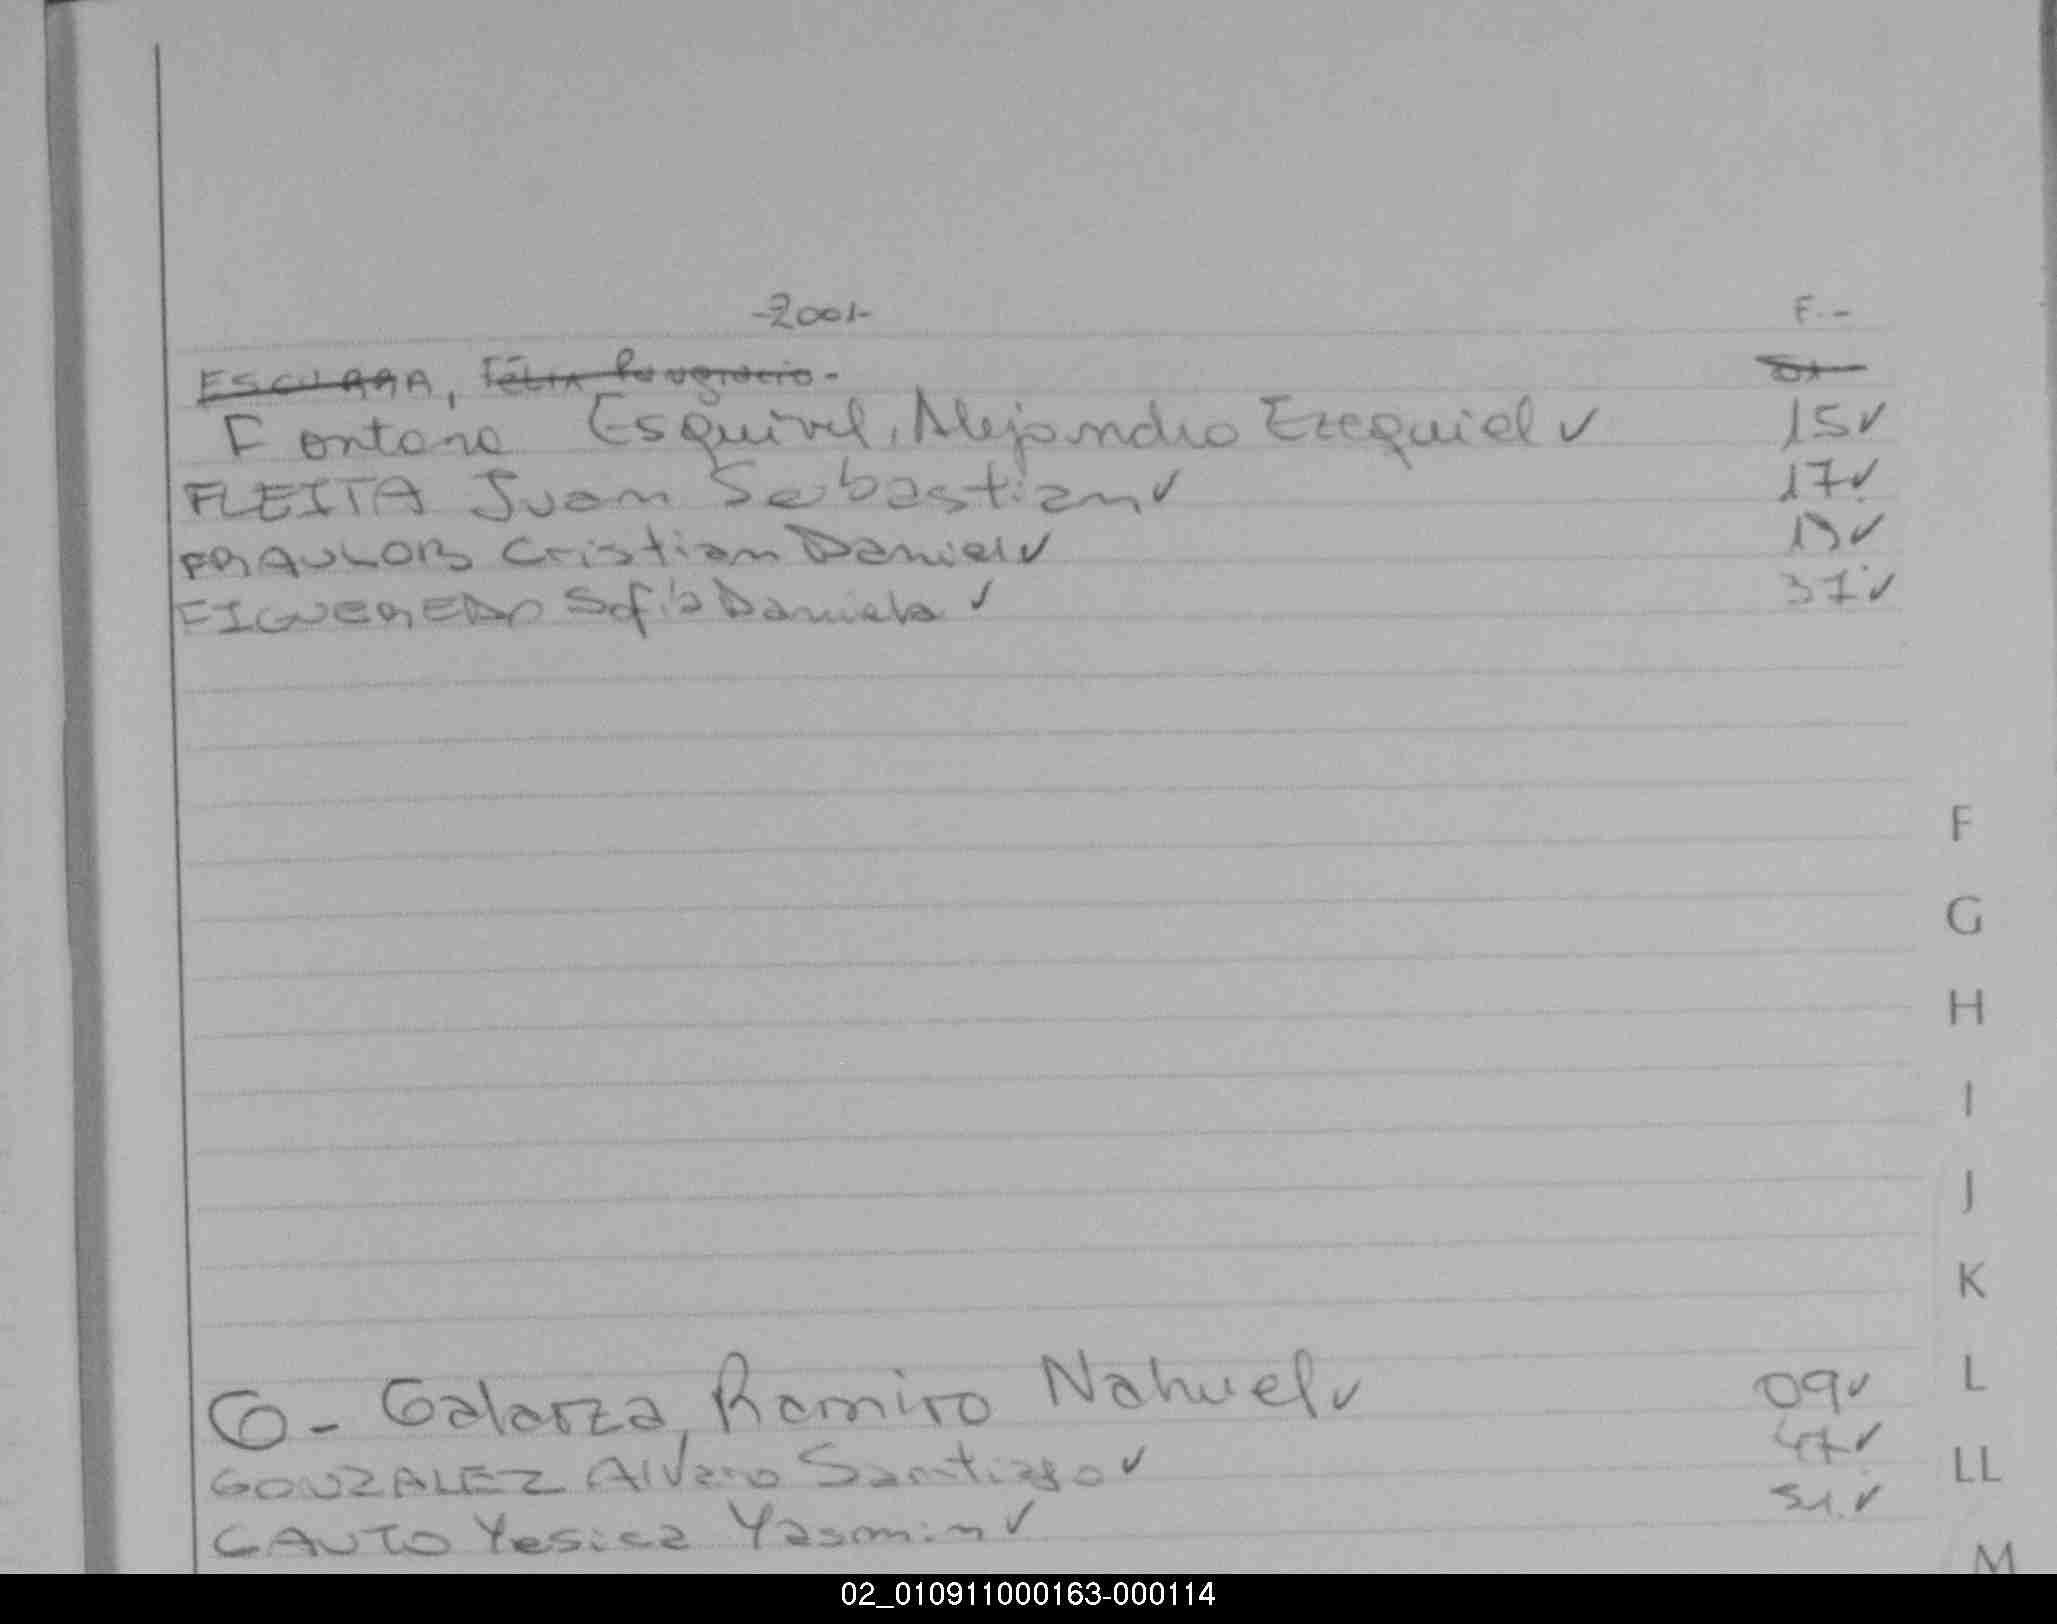 -2001- F.-
ESCURRA, Félix
Fontana Esquivel, Alejandro Ezequiel ✓ 15✓
FLEITA Juan Sebastian ✓ 17✓
Cristian Daniel ✓ 19✓
FIGUEREDO Sofia Daniela ✓ 37✓
F
G
H
I
J
K
G- Galarza, Ramiro Nahuel ✓ 09✓
L
GONZALEZ Alvaro Santiago ✓ 47✓
LL
GAUTO Yesica Yasmin ✓ 51.✓
M
02_010911000163-000114